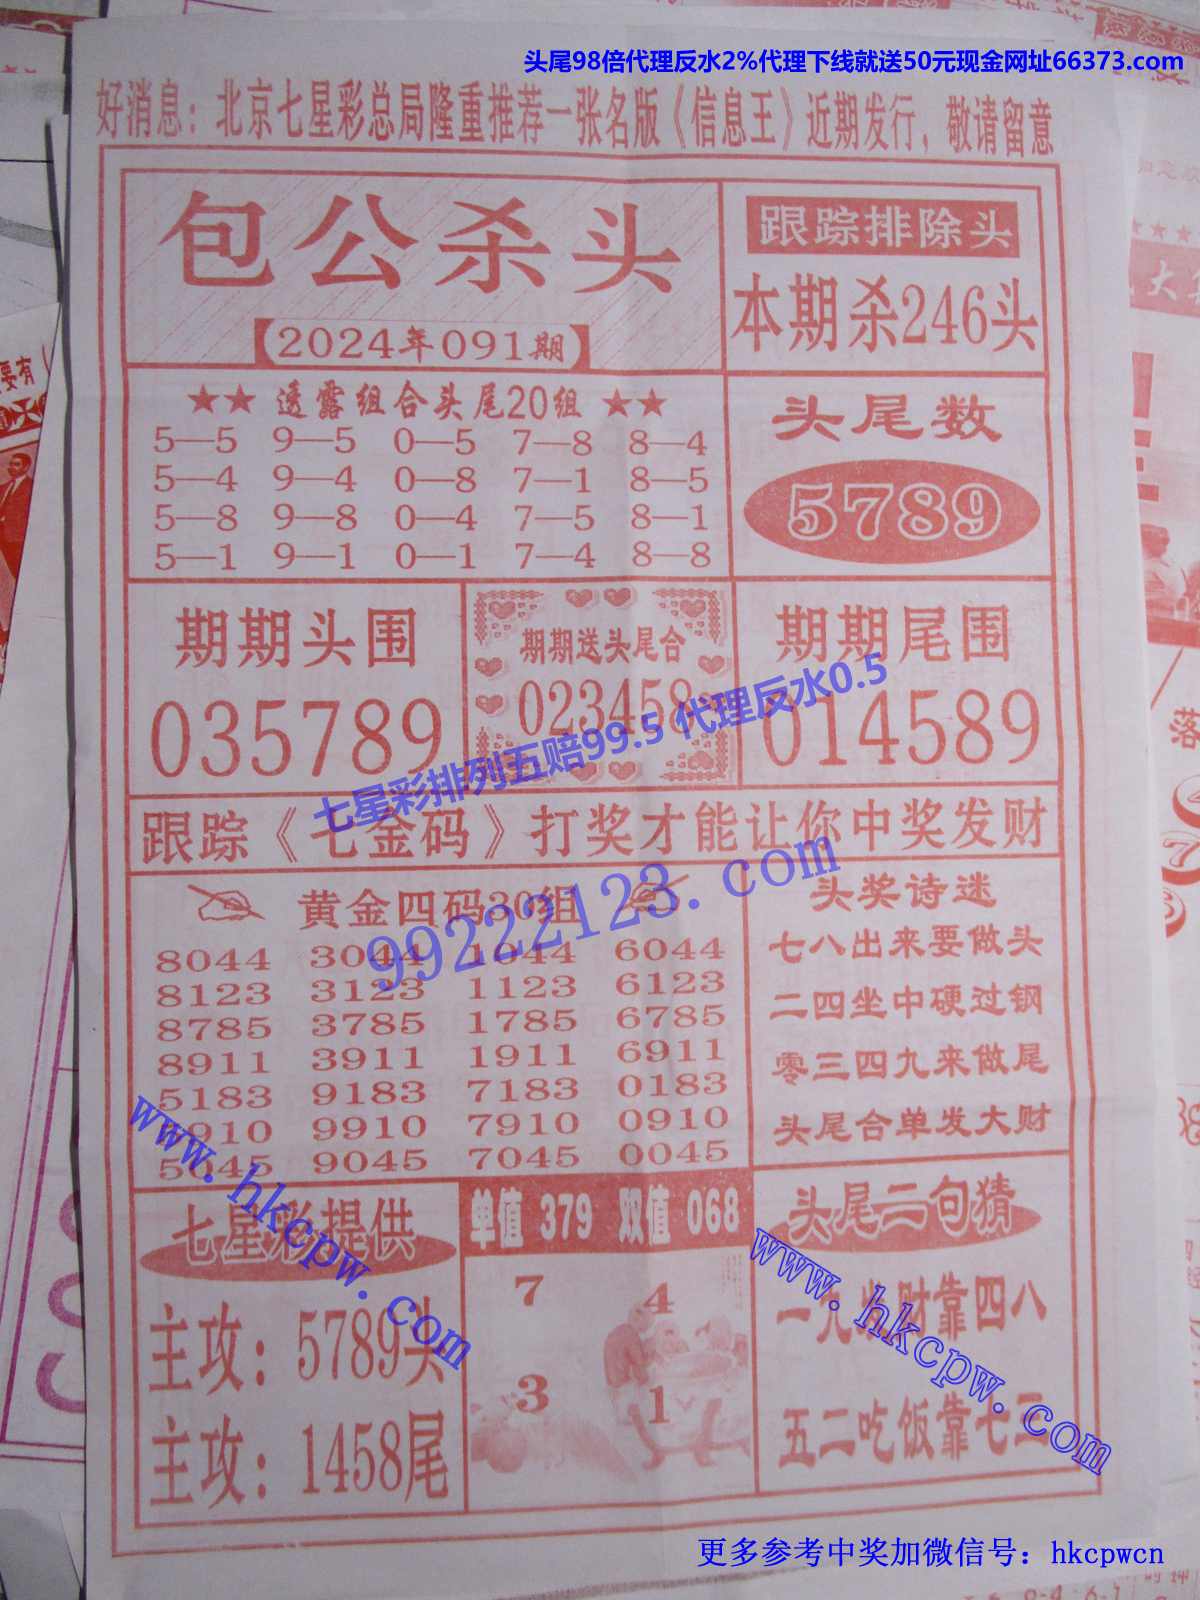 头尾98倍代理反水2%代理下线就送50元现金网址66373.com
好消息：北京七星彩总局隆重推荐一张名版《信息王》近期发行，敬请留意
包公杀头
【2024年091期】
跟踪排除头
本期杀246头
★★ 透露组合头尾20组 ★★
5—5 9—5 0—5 7—8 8—4
5—4 9—4 0—8 7—1 8—5
5—8 9—8 0—4 7—5 8—1
5—1 9—1 0—1 7—4 8—8
头尾数
5789
期期头围
035789
期期送头尾合
023458
期期尾围
014589
七星彩排列五赔99.5 代理反水0.5
跟踪《七金码》打奖才能让你中奖发财
99222123.com
黄金四码30组
8044 3044 1044 6044
8123 3123 1123 6123
8785 3785 1785 6785
8911 3911 1911 6911
5183 9183 7183 0183
910 9910 7910 0910
5045 9045 7045 0045
头奖诗迷
七八出来要做头
二四坐中硬过钢
零三四九来做尾
头尾合单发大财
www.hkcpw.com
七星彩提供
主攻：5789头
主攻：1458尾
单值 379 双值 068
7 4
3 1
头尾二句猜
一九发财靠四八
五二吃饭靠七三
www.hkcpw.com
更多参考中奖加微信号：hkcpwcn